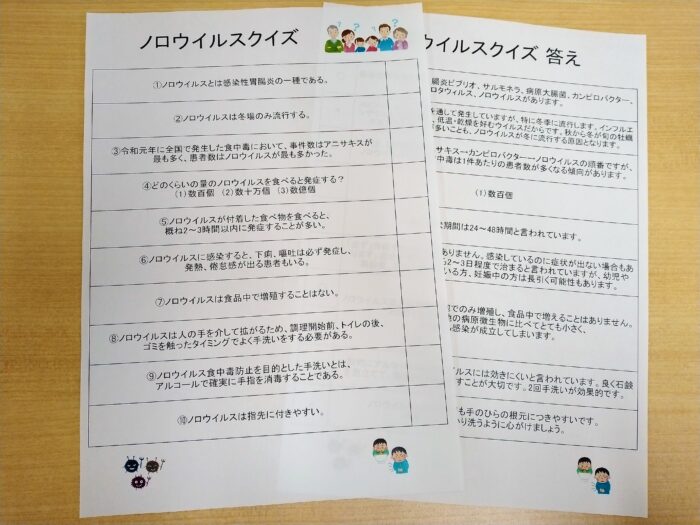 ノロウイルスクイズ
①ノロウイルスとは感染性胃腸炎の一種である。
②ノロウイルスは冬場のみ流行する。
③令和元年に全国で発生した食中毒において、事件数はアニサキスが
最も多く、患者数はノロウイルスが最も多かった。
④どのくらいの量のノロウイルスを食べると発症する？
(1)数百個 (2)数十万個 (3)数億個
⑤ノロウイルスが付着した食べ物を食べると、
概ね2～3時間以内に発症することが多い。
⑥ノロウイルスに感染すると、下痢、嘔吐は必ず発症し、
発熱、倦怠感が出る患者もいる。
⑦ノロウイルスは食品中で増殖することはない。
⑧ノロウイルスは人の手を介して拡がるため、調理開始前、トイレの後、
ゴミを触ったタイミングでよく手洗いをする必要がある。
⑨ノロウイルス食中毒防止を目的とした手洗いとは、
アルコールで確実に手指を消毒することである。
⑩ノロウイルスは指先に付きやすい。
ウイルスクイズ 答え
腸炎ビブリオ、サルモネラ、病原大腸菌、カンピロバクター、
ロタウィルス、ノロウイルスがあります。
を通して発生していますが、特に冬季に流行します。インフルエ
、低温・乾燥を好むウイルスだからです。秋から冬が旬の牡蠣
多いことも、ノロウイルスが冬に流行する原因となります。
サキスーカンピロバクターーノロウイルスの順番ですが、
中毒は1件あたりの患者数が多くなる傾向があります。
(1)数百個
期間は24～48時間と言われています。
ありません。感染しているのに症状が出ない場合もあ
2～3日程度で治まると言われていますが、幼児や
いる方、妊娠中の方は長引く可能性もあります。
でのみ増殖し、食品中で増えることはありません。
の病原微生物に比べてとても小さく、
感染が成立してしまいます。
ルスには効きにくいと言われています。良く石鹸
すことが大切です。2回手洗いが効果的です。
も手のひらの根元につきやすいです。
い洗うように心がけましょう。